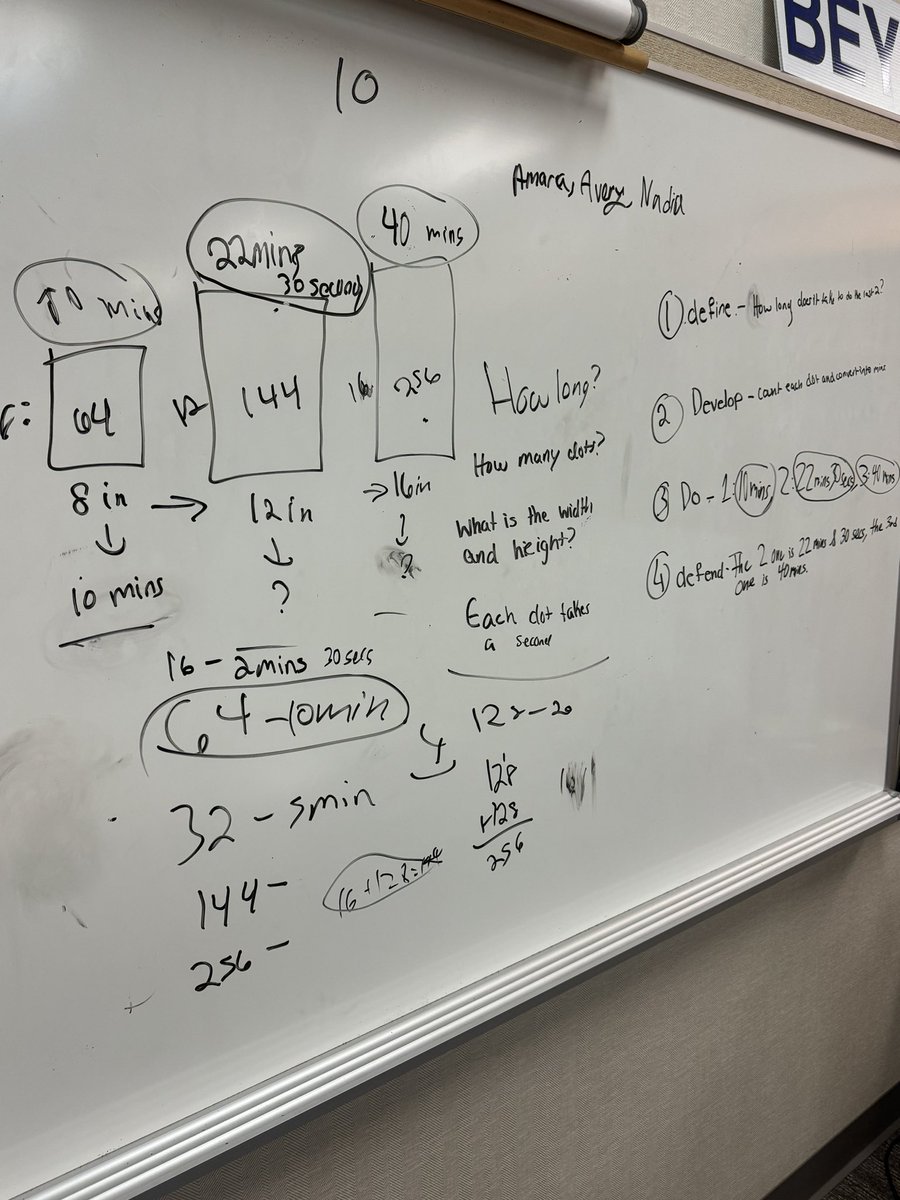 BEY
10
Amara, Avery, Nadia
10 mins
22mins
30 seconds
40 mins
64
12
144
16
256
8 in → 12 in → 16 in
10 mins
?
?
How long?
How many dots?
What is the width
and height?
Each dot takes
a second
① define - How long does it take to do the last 2?
② Develop - count each dot and convert into mins
③ Do - 1: 10mins, 2: 22mins 30secs, 3: 40 mins
④ defend - The 2 one is 22 mins & 30 secs, the 3rd
one is 40 mins.
16 - 2mins 30 secs
64 - 10min
32 - 5min
144 -
256 -
16 + 128 = 144
4
128 - 20
128
+128
256